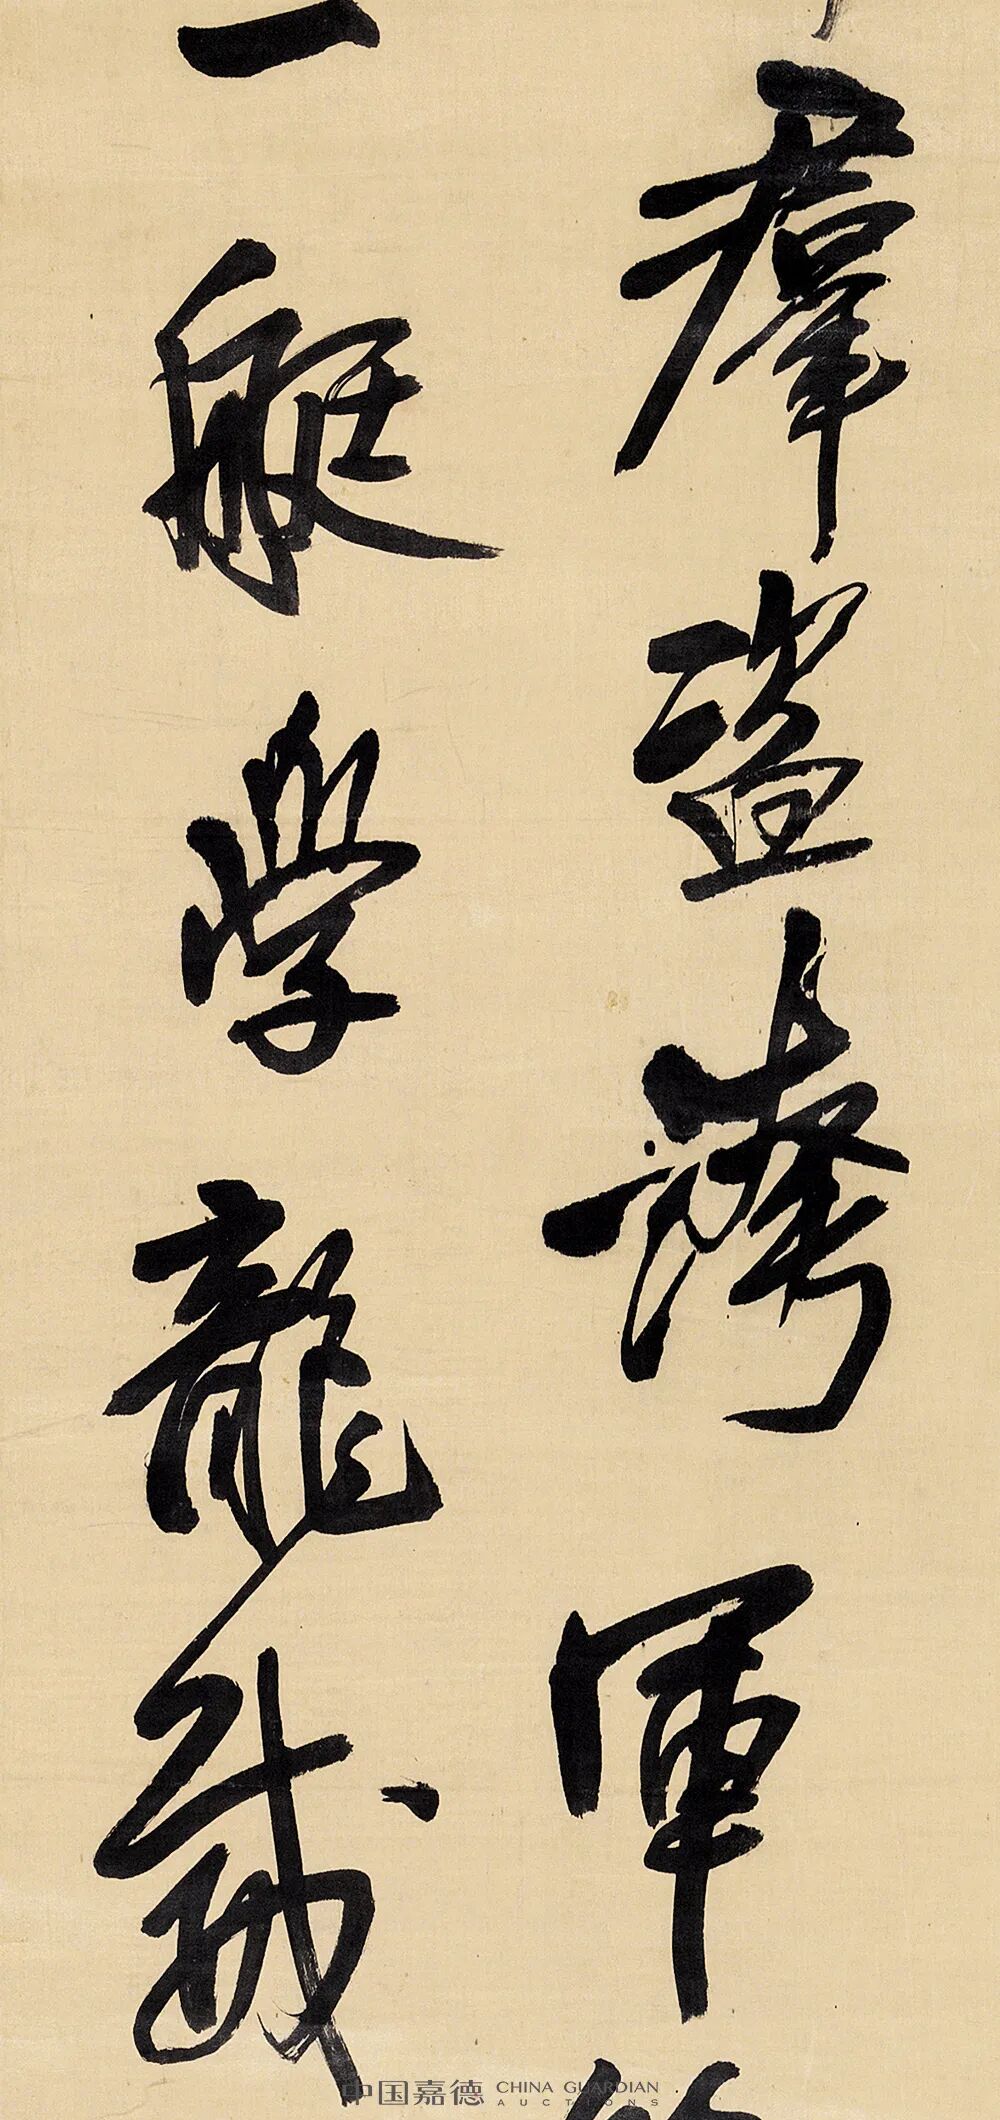 羣盜譸軍
一艇學龍威
中国嘉德 CHINA GUARDIAN AUCTIONS